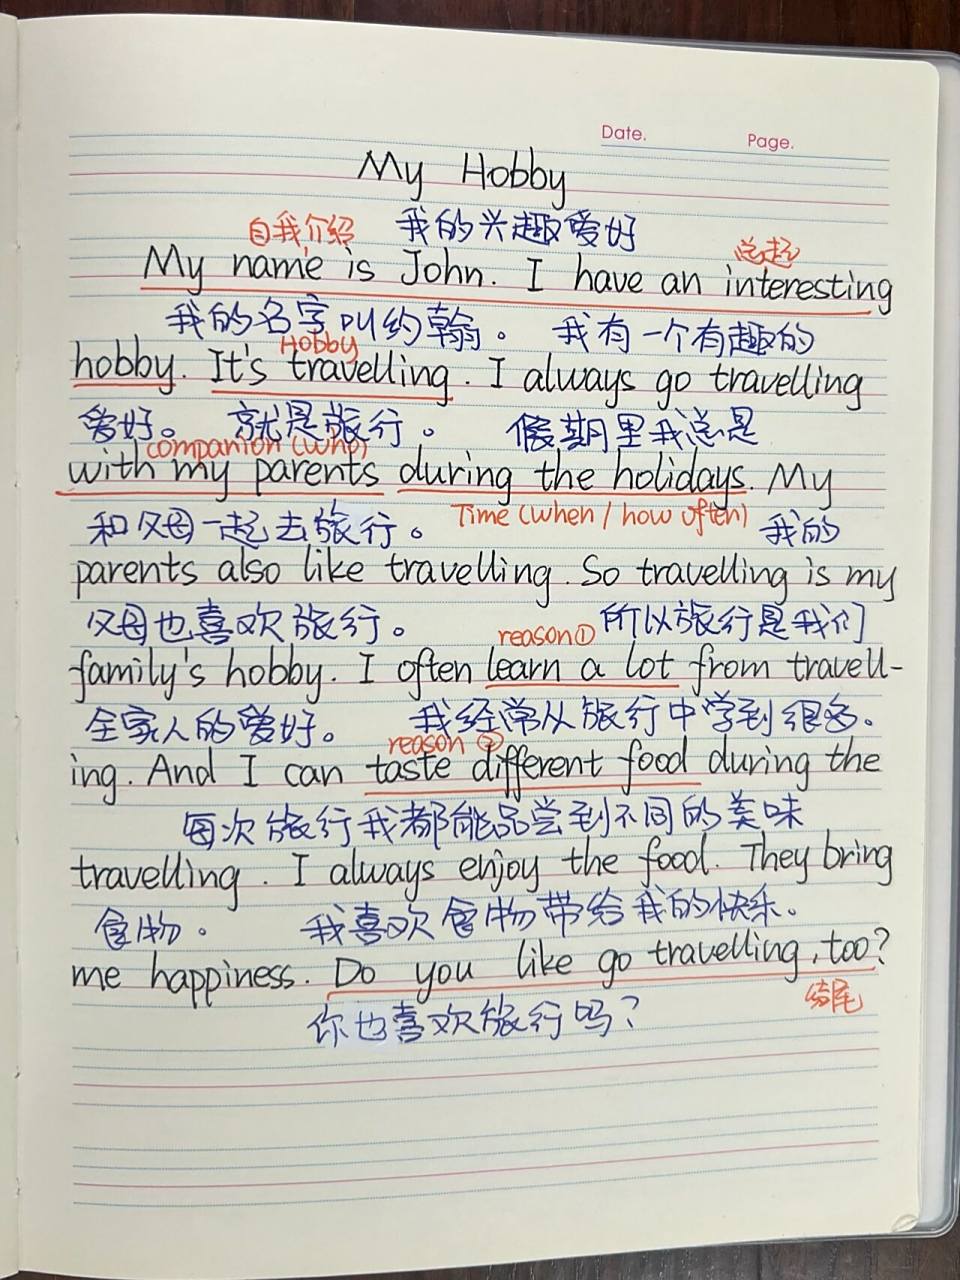 Date. Page.
My Hobby
自我介绍 我的兴趣爱好 总起
My name is John. I have an interesting
我的名字叫约翰。 我有一个有趣的
Hobby
hobby. It's travelling. I always go travelling
爱好。 就是旅行。 假期里我总是
companion (who)
with my parents during the holidays. My
和父母一起去旅行。 Time (when / how often) 我的
parents also like travelling. So travelling is my
父母也喜欢旅行。 reason① 所以旅行是我们
family's hobby. I often learn a lot from travell-
全家人的爱好。 我经常从旅行中学到很多。
reason ②
ing. And I can taste different food during the
每次旅行我都能品尝到不同的美味
travelling. I always enjoy the food. They bring
食物。 我喜欢食物带给我的快乐。
me happiness. Do you like go travelling, too?
结尾
你也喜欢旅行吗?